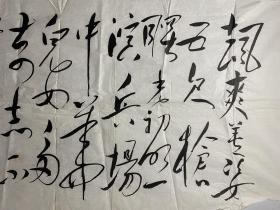 飒爽英姿
五尺枪
曙光初照
演兵场
中华
儿女多
奇志不